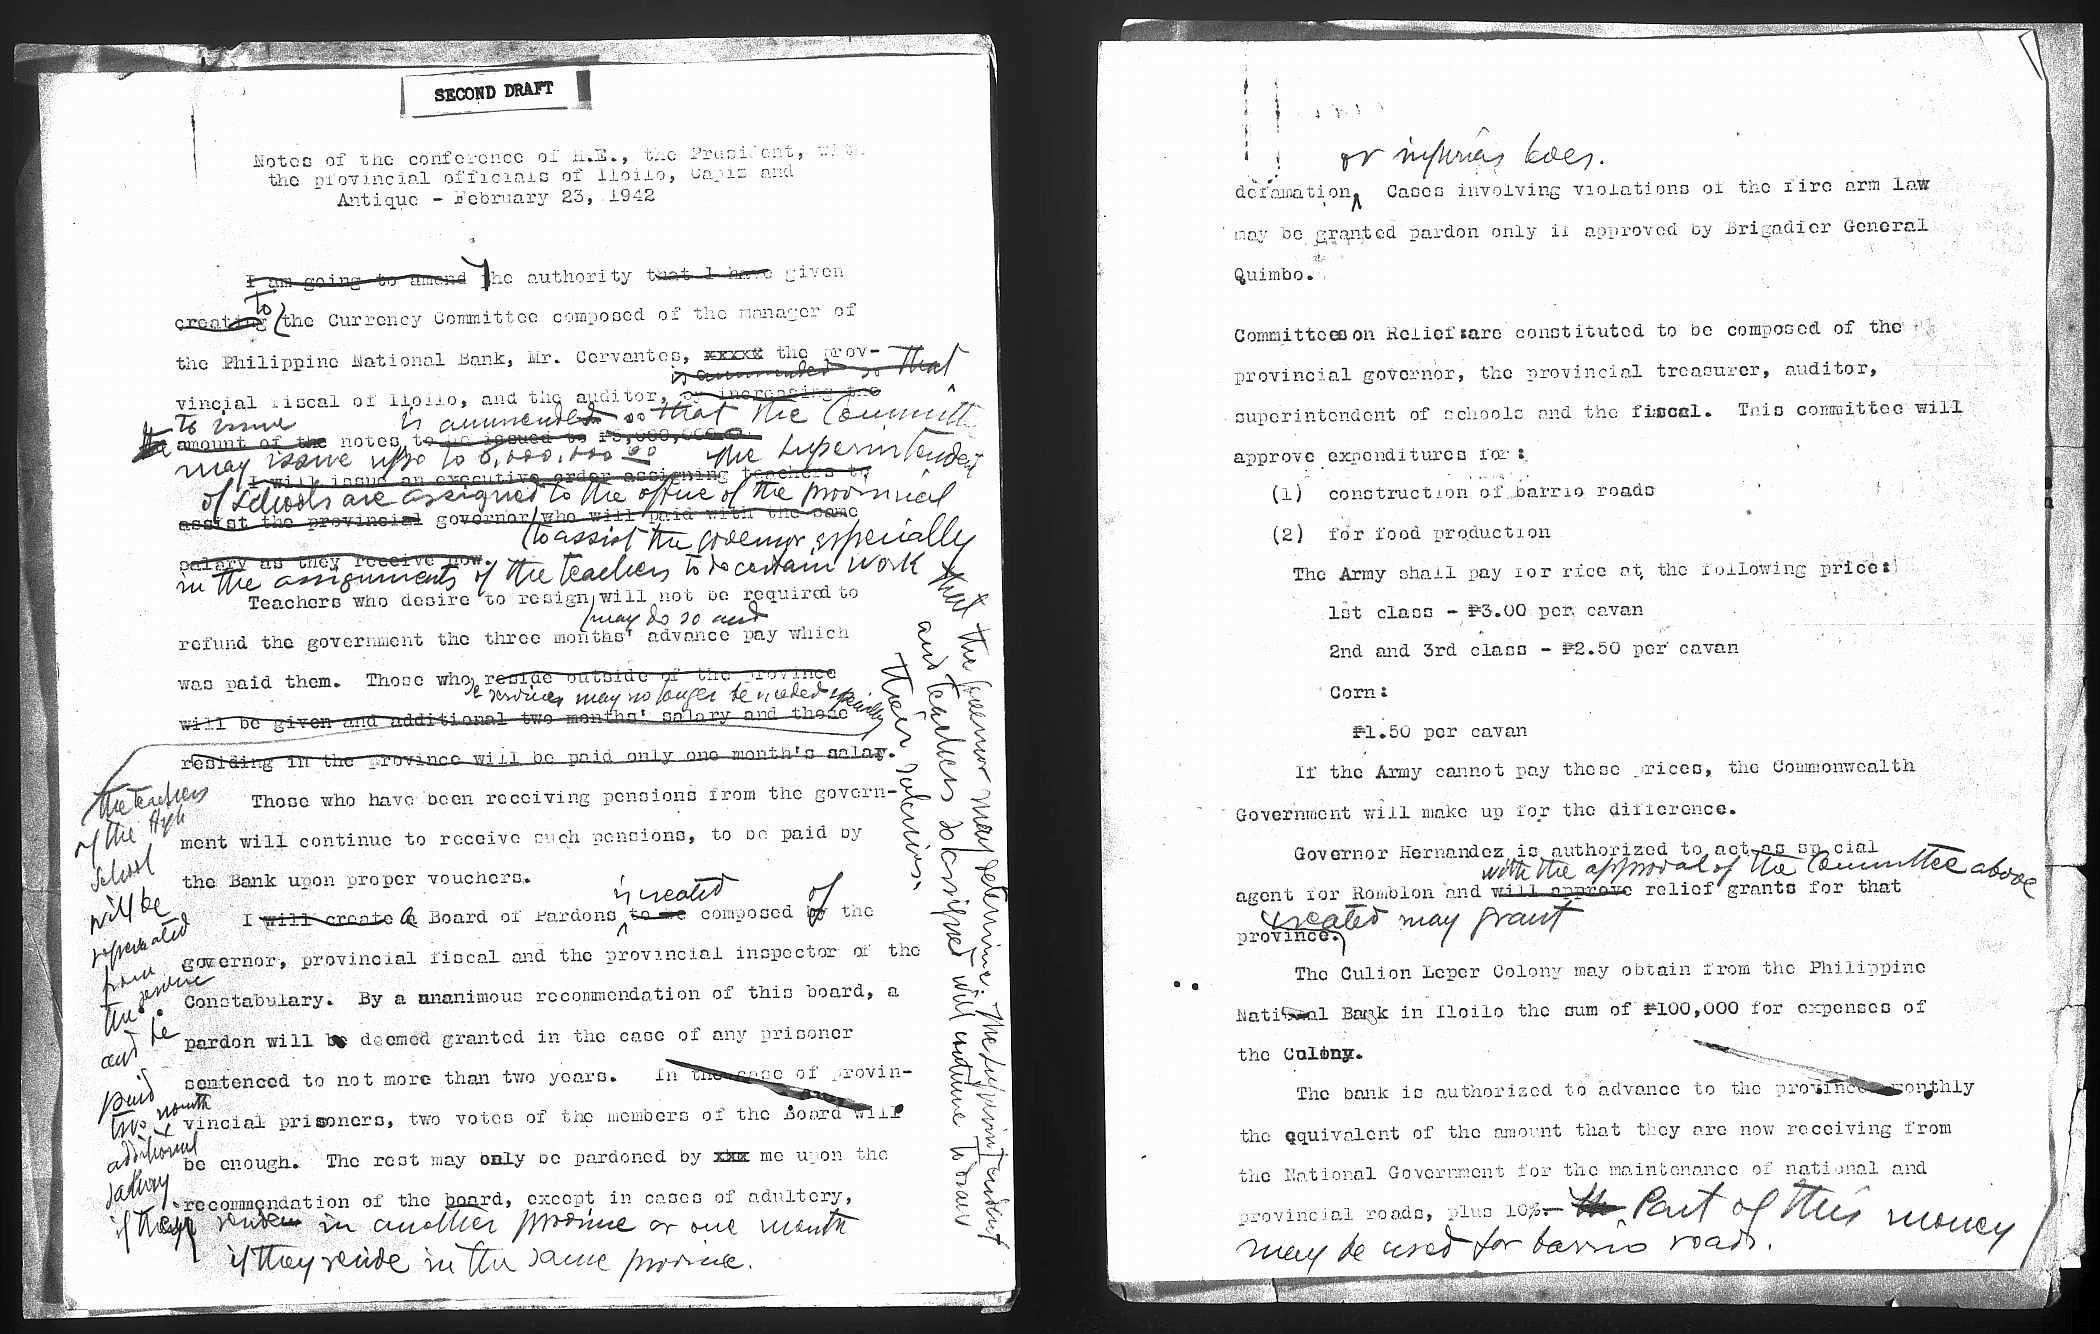 SECOND DRAFT
Notes of the conference of H.E., the President, with
the provincial officials of Iloilo, Capiz and
Antique - February 23, 1942
I am going to amend The authority that I have given
to
creating the Currency Committee composed of the manager of
the Philippine National Bank, Mr. Cervantes, xxxxx the prov-
is ammended so that
vincial fiscal of Iloilo, and the auditor, by increasing the
to issue is ammended so that the Committee
amount of the notes to be issued to ₱5,000,000.
may issue up to 8,000,000.00 The Superintendent
I will issue an executive order assigning teachers to
of schools are assigned to the office of the provincial
assist the provincial governor who will paid with the same
to assist the governor especially
salary as they receive now.
in the assignments of the teachers to do certain work
Teachers who desire to resign will not be required to
may do so and
refund the government the three months' advance pay which
was paid them. Those who reside outside of the province
se services may no longer be needed specially
will be given and additional two months' salary and those
residing in the province will be paid only one month's salay.
Those who have been receiving pensions from the govern-
ment will continue to receive such pensions, to be paid by
the Bank upon proper vouchers.
is created of
I will create a Board of Pardons to be composed by the
governor, provincial fiscal and the provincial inspector of the
Constabulary. By a unanimous recommendation of this board, a
pardon will be deemed granted in the case of any prisoner
sentenced to not more than two years. In the case of provin-
vincial prisoners, two votes of the members of the Board will
be enough. The rest may only be pardoned by xxx me upon the
recommendation of the board, except in cases of adultery,
the teachers
of the High
School
will be
separated
from
the service
and be
paid
two month
additional
salary
if they reside in another province or one month
if they reside in the same province.
that the Governor may determine. The Superintendent
and teachers so assigned will continue to draw
their salaries.
or injurias
defamation Cases involving violations of the fire arm law
may be granted pardon only if approved by Brigadier General
Quimbo.
Committees on Relief are constituted to be composed of the
provincial governor, the provincial treasurer, auditor,
superintendent of schools and the fiscal. This committee will
approve expenditures for:
(1) construction of barrio roads
(2) for food production
The Army shall pay for rice at the following price:
1st class - ₱3.00 per cavan
2nd and 3rd class - ₱2.50 per cavan
Corn:
₱1.50 per cavan
If the Army cannot pay these prices, the Commonwealth
Government will make up for the difference.
Governor Hernandez is authorized to act as special
with the approval of the Committee above
agent for Romblon and will approve relief grants for that
created may grant
province.
The Culion Leper Colony may obtain from the Philippine
National Bank in Iloilo the sum of ₱100,000 for expenses of
the Colony.
The bank is authorized to advance to the provinces monthly
the equivalent of the amount that they are now receiving from
the National Government for the maintenance of national and
provincial roads, plus 10%. Part of this money
may be used for barrio roads.